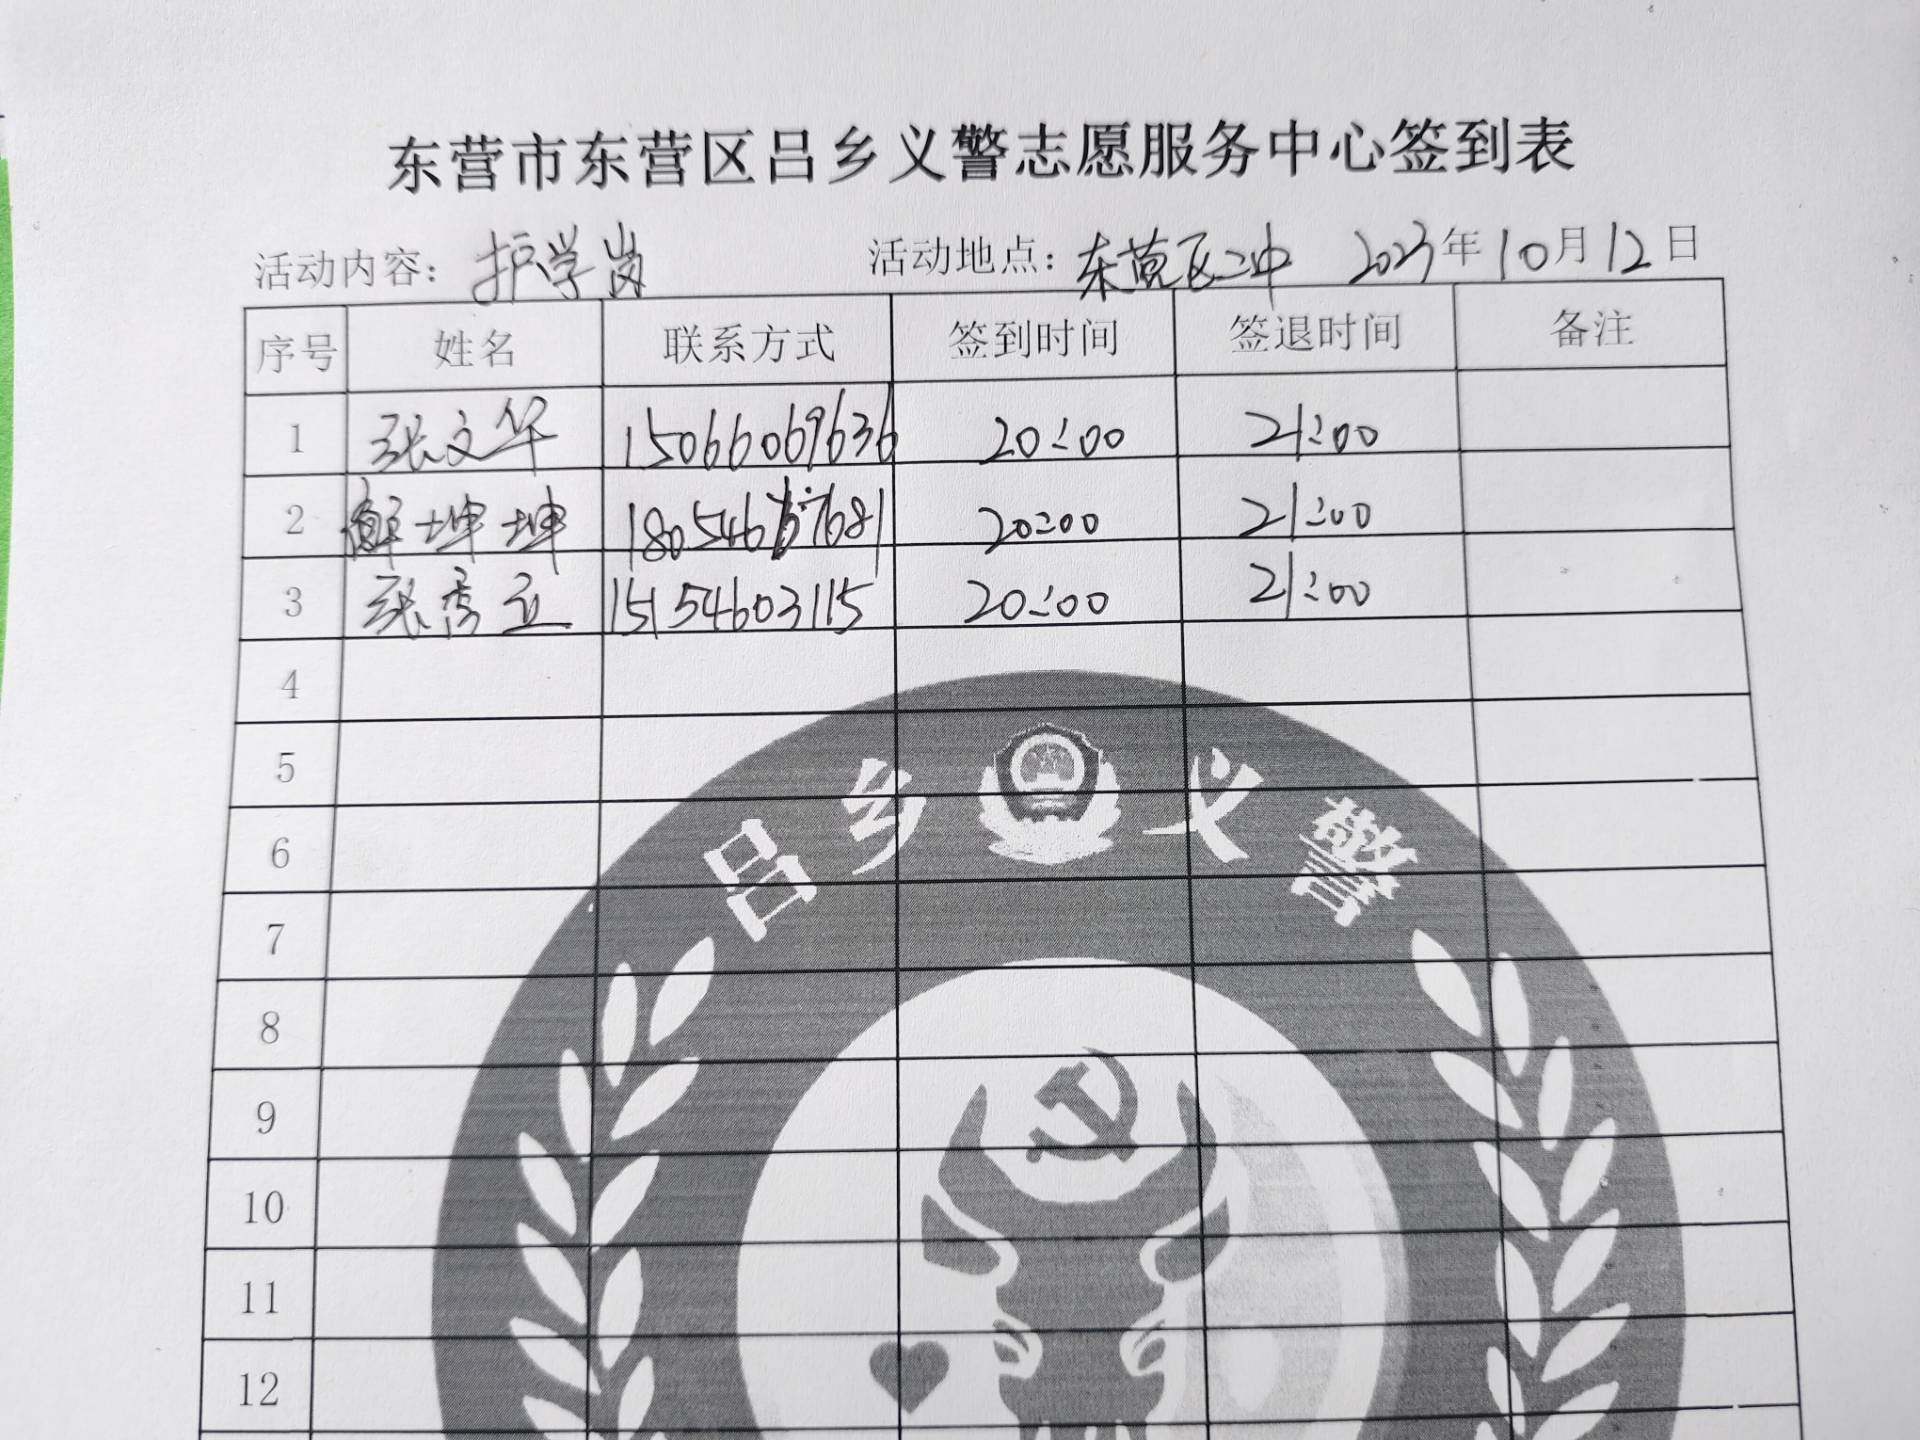 东营市东营区吕乡义警志愿服务中心签到表
活动内容：护学岗 活动地点：东营区二中 2023年10月12日
序号 姓名 联系方式 签到时间 签退时间 备注
1 张文华 15066069636 20:00 21:00
2 坤坤 20:00 21:00
3 张秀 15154603115 20:00 21:00
4
5
6
7
8
9
10
11
12
吕乡义警